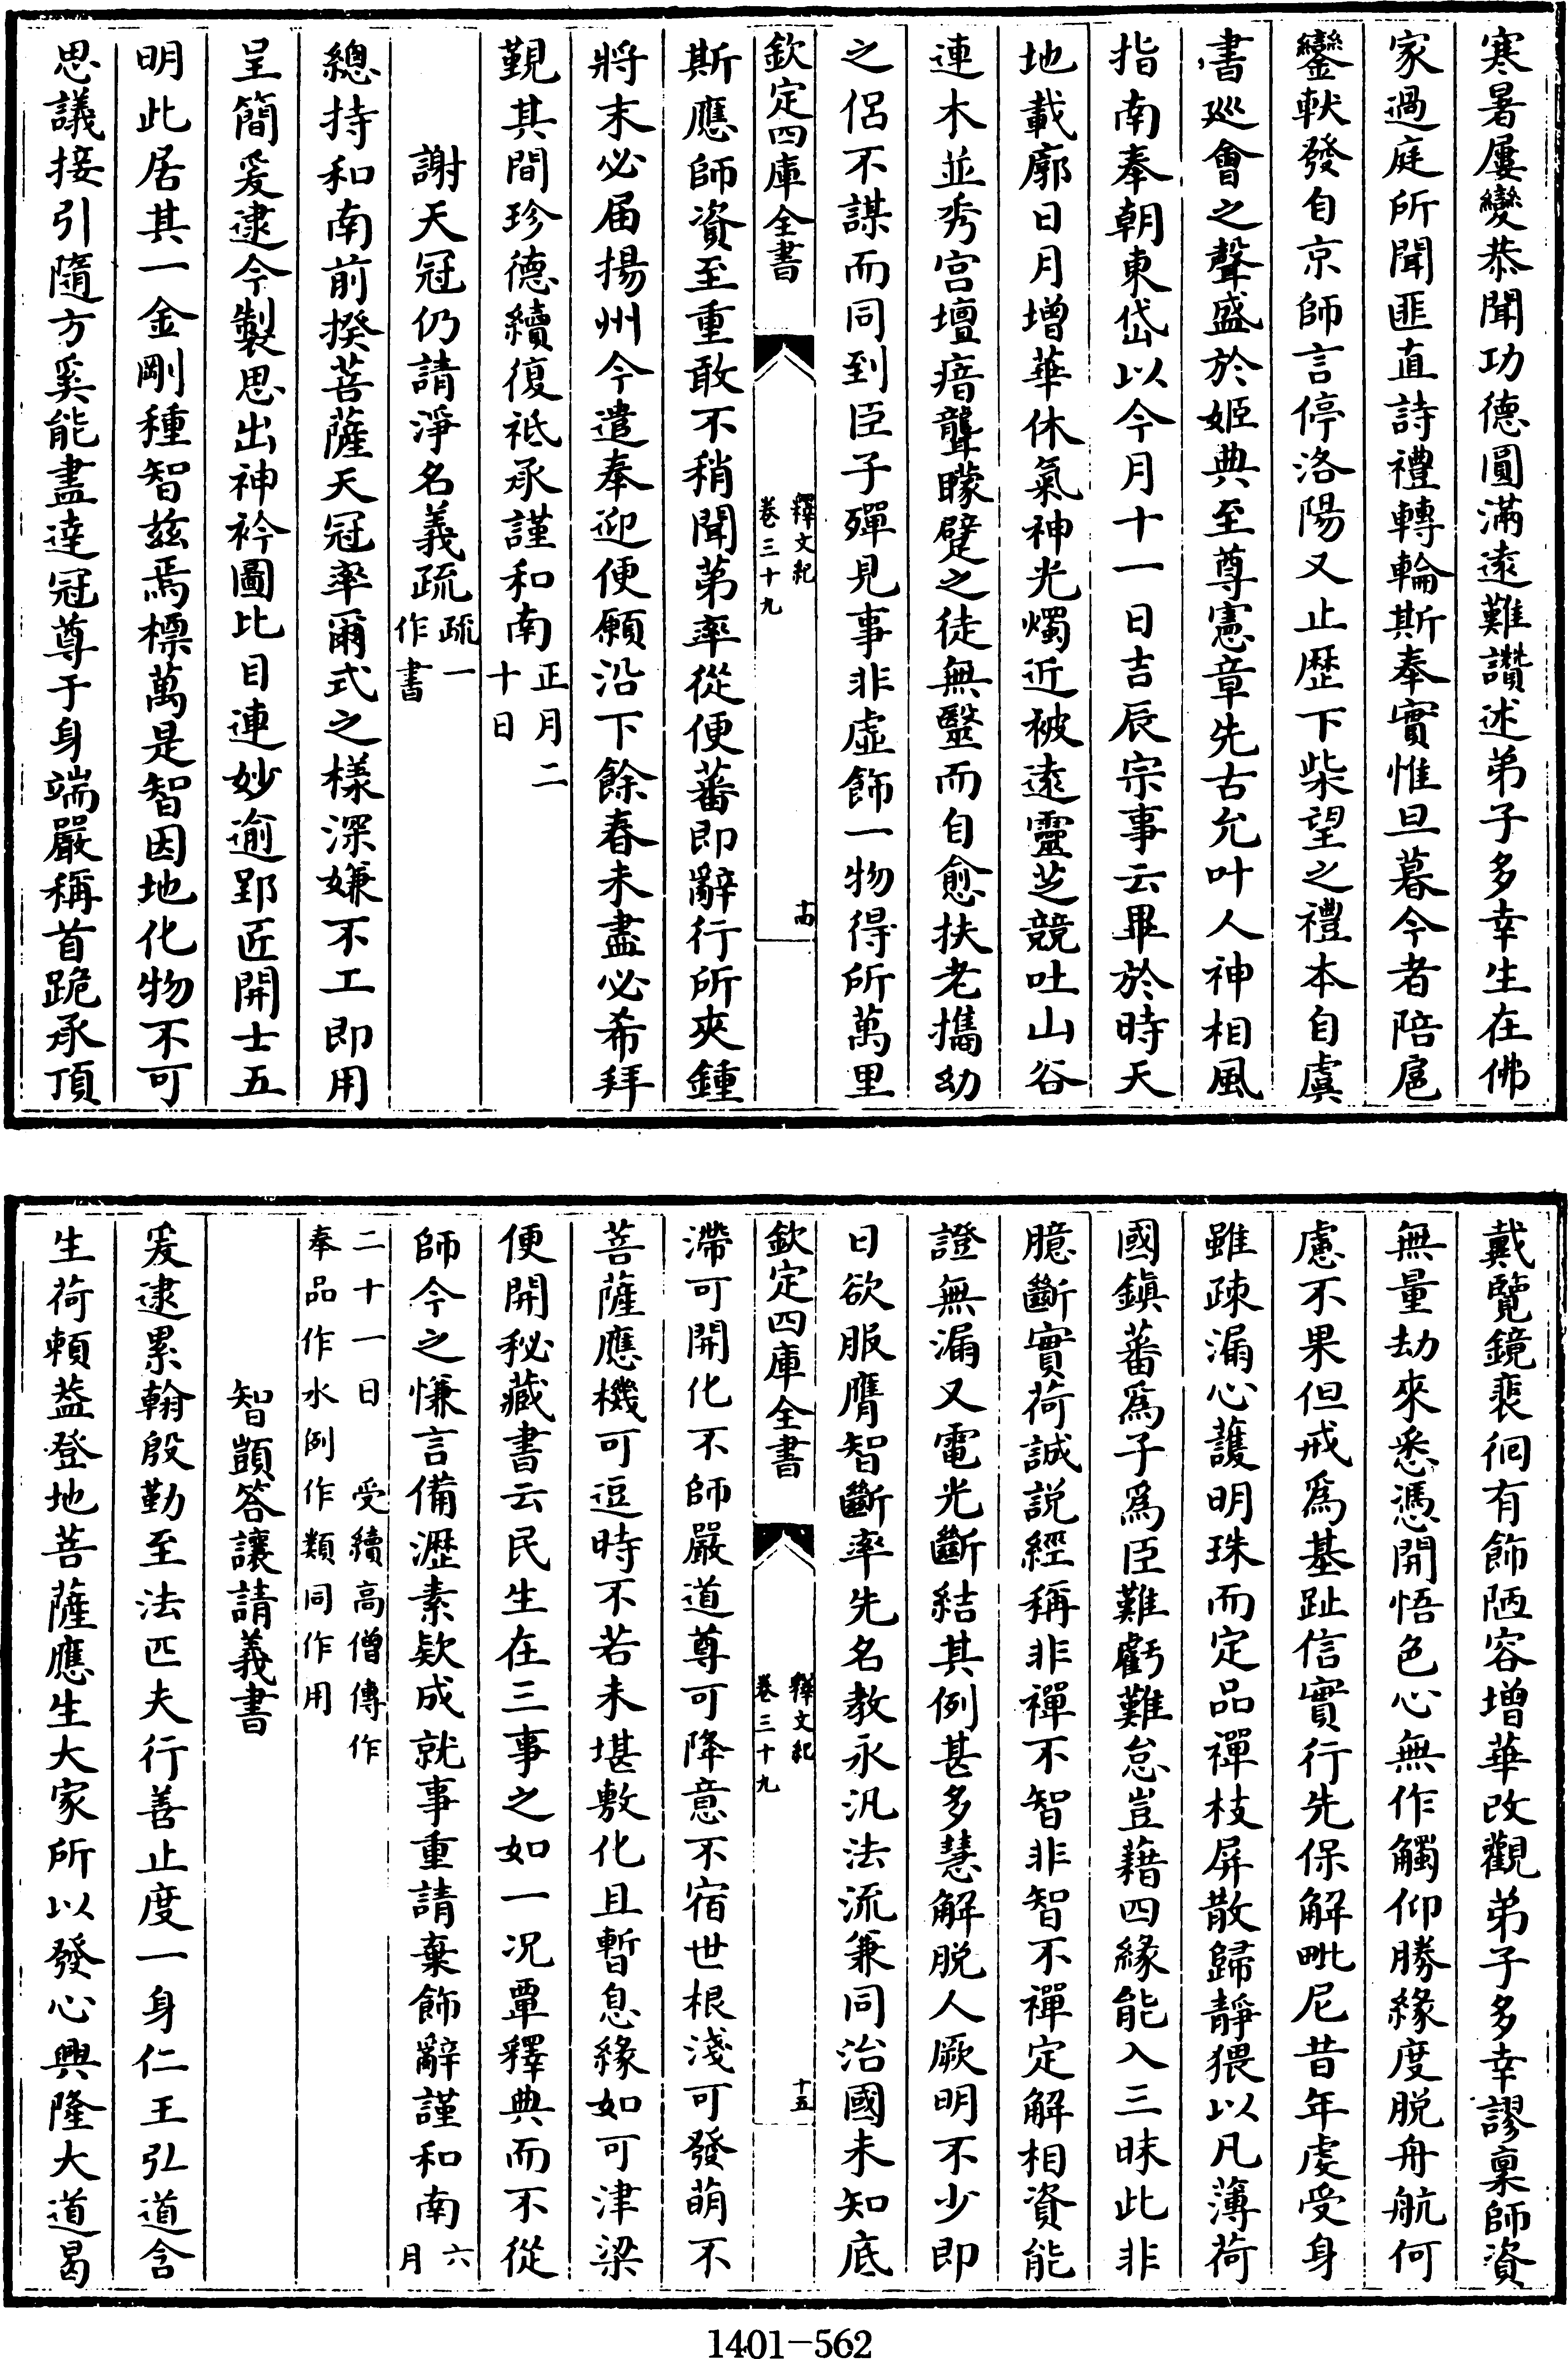 寒暑屢變恭聞功德圓滿遠難讚述弟子多幸生在佛
家過庭所聞匪直詩禮轉輪斯奉實惟旦暮今者陪扈
鑾軑發自京師言停洛陽又止歷下柴望之禮本自虞
書廵會之聲盛於姬典至尊憲章先古允叶人神相風
指南奉朝東岱以今月十一日吉辰宗事云畢於時天
地載廓日月增華休氣神光燭近被遠靈芝競吐山谷
連木並秀宫壇瘖聾矇躄之徒無毉而自愈扶老攜幼
之侶不謀而同到臣子殫見事非虛飾一物得所萬里
欽定四庫全書
釋文紀
卷三十九
十四
斯應師資至重敢不稍聞第率從便蕃即辭行所夾鍾
將末必届揚州今遣奉迎便願沿下餘春未盡必希拜
覲其間珍德續復祗承謹和南正月二
十日
謝天冠仍請淨名義疏疏一
作書
總持和南前揆菩薩天冠率爾式之樣深嫌不工即用
呈簡爰逮今製思出神衿圖比目連妙逾郢匠開士五
明此居其一金剛種智兹焉標萬是智因地化物不可
思議接引隨方奚能盡達冠尊于身端嚴稱首跪承頂
戴覽鏡裴徊有飾陋容增華改觀弟子多幸謬稟師資
無量劫來悉憑開悟色心無作觸仰勝緣度脱舟航何
慮不果但戒爲基趾信實行先保解毗尼昔年虔受身
雖疎漏心護明珠而定品禪枝屏散歸靜猥以凡薄荷
國鎮蕃爲子爲臣難虧難怠豈藉四緣能入三昧此非
臆斷實荷誠説經稱非禪不智非智不禪定解相資能
證無漏又電光斷結其例甚多慧解脱人厥明不少即
日欲服膺智斷率先名教永汎法流兼同治國未知底
欽定四庫全書
釋文紀
卷三十九
十五
滯可開化不師嚴道尊可降意不宿世根淺可發萌不
菩薩應機可逗時不若未堪敷化且暫息緣如可津梁
便開秘藏書云民生在三事之如一况覃釋典而不從
師今之慊言備瀝素欵成就事重請棄飾辭謹和南六
月
二十一日　受續高僧傳作
奉品作水例作類同作用
智顗答讓請義書
爰逮累翰殷勤至法匹夫行善止度一身仁王弘道含
生荷頼益登地菩薩應生大家所以發心興隆大道曷
1401-562